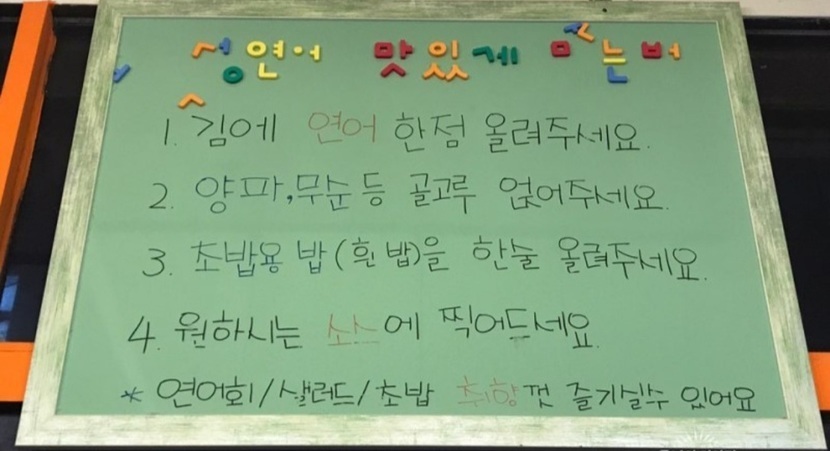 성연어 맛있게 먹는법
1. 김에 연어 한점 올려주세요.
2. 양파,무순등 골고루 얹어주세요.
3. 초밥용 밥(흰밥)을 한술 올려주세요.
4. 원하시는 소스에 찍어드세요.
* 연어회/샐러드/초밥 취향껏 즐기실수 있어요